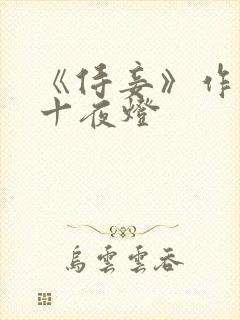 《侍妾》作
十夜燈
烏雲雲吞